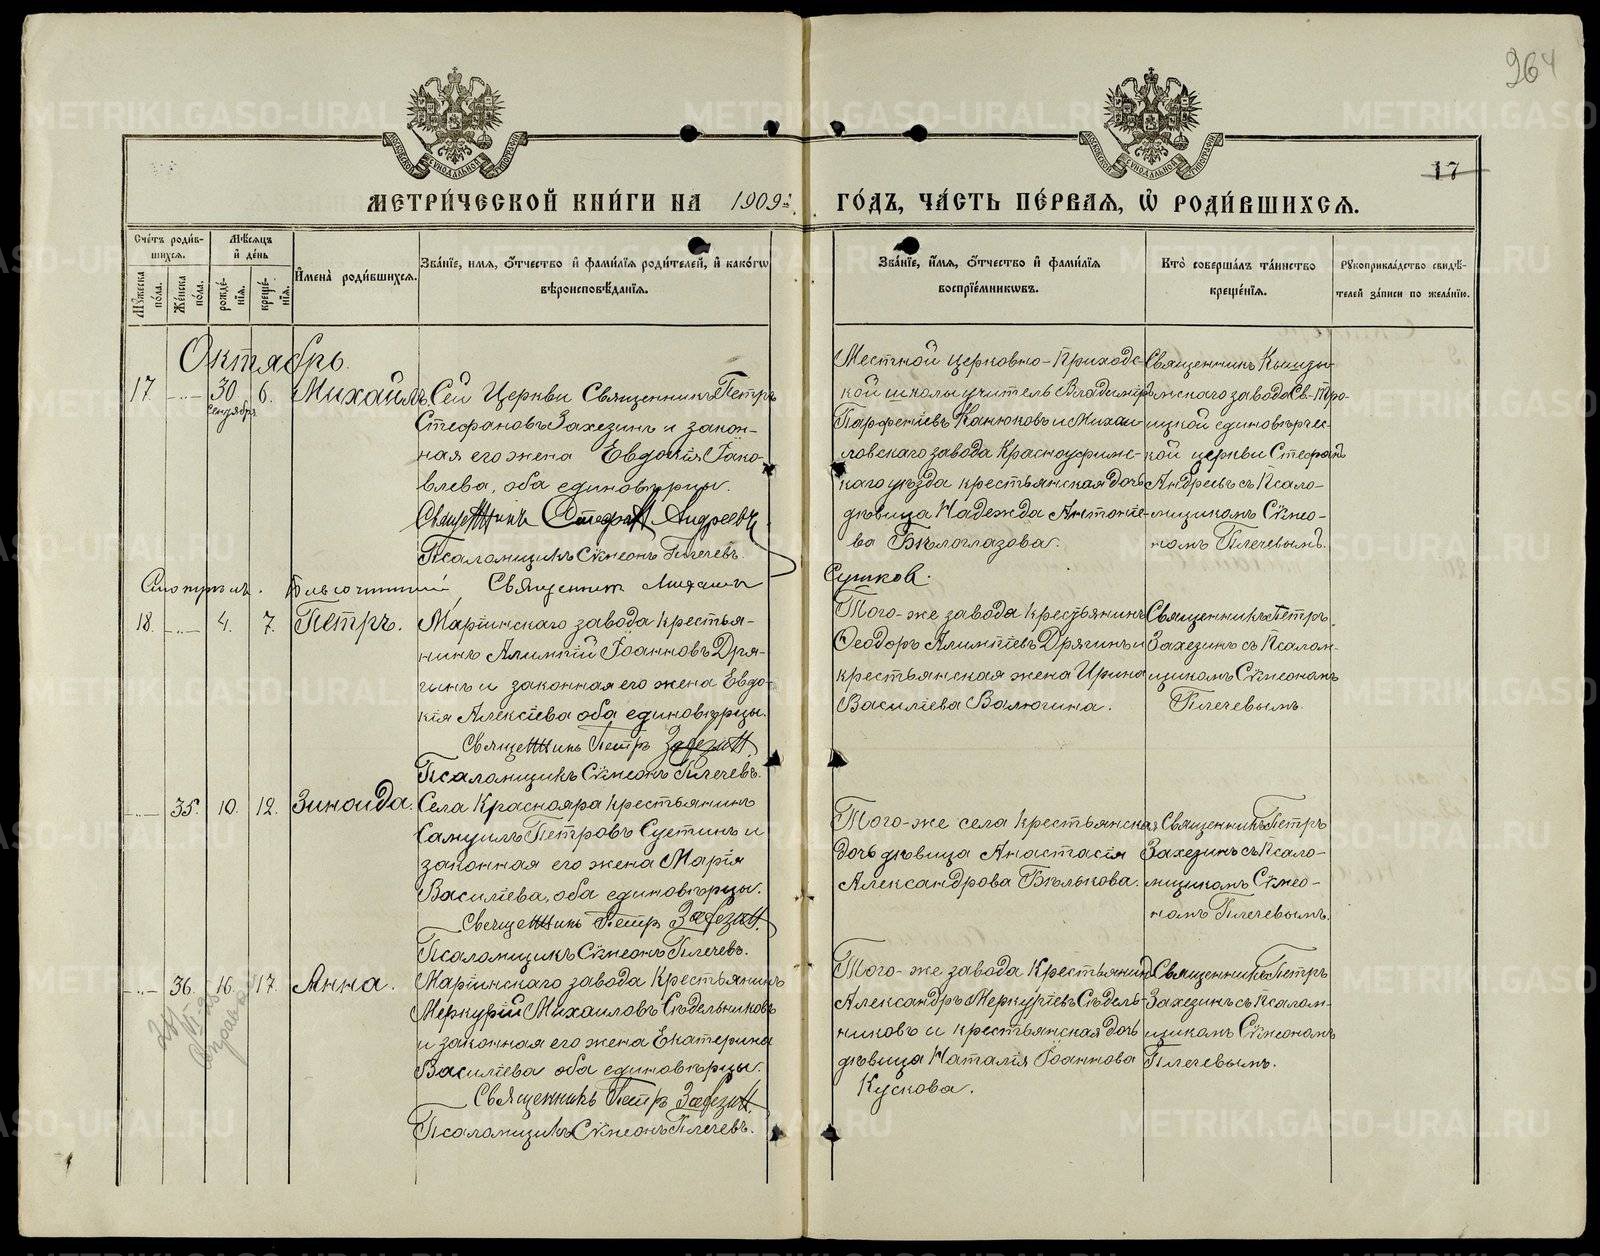 264
17
МЕТРИ́ЧЕСКОЙ КНИ́ГИ НА 1909 й ГО́ДЪ, ЧА́СТЬ ПЕ́РВАЯ, Ѡ РОДИ́ВШИХСЯ.
Сче́тъ роди́вшихся.
Мѣ́сяцъ и де́нь
Мꙋ́жеска по́ла.
Же́нска по́ла.
рожде́нїя.
креще́нїя.
Имена̀ роди́вшихся.
Зва́нїе, имя, о́тчество и фами́лїя роди́телей, и како́гѡ
вѣроисповѣ́данїя.
Зва́нїе, и́мя, о́тчество и фами́лїя
воспрїе́мникѡвъ.
Кто̀ соверша́лъ та́инство
креще́нїя.
Рꙋкоприкла́дство свидѣ́-
телей за́писи по жела́нїю.
Октябрь.
17 -"- 30 сентября 6. Михаилъ.
Сей Церкви Священникъ Петръ
Стефановъ Захезинъ и закон-
ная его жена Евдокія Іако-
влева, оба единовѣрцы.
Священникъ Стефанъ Андреевъ
Псаломщикъ Сѵмеонъ Плечевъ.
Местной церковно-приходс-
кой школы учитель Владиміръ
Парфеніевъ Канюковъ и Михаи-
ловскаго завода Красноуфимс-
каго уѣзда крестьянская дочь
дѣвица Надежда Антоніе-
ва Бѣлоглазова.
Священникъ Кышты-
мскаго завода Св.-Тро-
ицкой единовѣрчес-
кой церкви Стефанъ
Андреевъ съ Псало-
мщикомъ Сѵмео-
номъ Плечевымъ.
Смотрѣлъ. Благочинный, Священник Михаилъ Сушков.
18. -"- 4. 7. Петръ.
Маріинскаго завода крестья-
нинъ Алимпій Іоанновъ Дря-
гинъ и законная его жена Евдо-
кія Алексіева оба единовѣрцы.
Священникъ Петръ Захезинъ.
Псаломщикъ Сѵмеонъ Плечевъ.
Того-же завода крестьянинъ
Ѳеодоръ Алимпіевъ Дрягинъ и
крестьянская жена Ирина
Василіева Валюгина.
Священникъ Петръ
Захезинъ съ Псалом-
щикомъ Сѵмеономъ
Плечевымъ.
-"- 35. 10. 12. Зинаида.
Села Краснояра крестьянинъ
Самуилъ Петровъ Суетинъ и
законная его жена Марія
Василіева, оба единовѣрцы.
Священникъ Петръ Захезинъ.
Псаломщикъ Сѵмеонъ Плечевъ.
Того-же села крестьянская
дочь дѣвица Анастасія
Александрова Бѣлькова.
Священникъ Петръ
Захезинъ съ Псало-
мщикомъ Сѵмео-
номъ Плечевымъ.
-"- 36. 16. 17. Анна.
Маріинскаго завода Крестьянинъ
Меркурій Михаиловъ Сѣдельниковъ
и законная его жена Екатерина
Василіева оба единовѣрцы.
Священникъ Петръ Захезинъ.
Псаломщикъ Сѵмеонъ Плечевъ.
Того-же завода Крестьянинъ
Александръ Меркуріевъ Сѣдель-
никовъ и крестьянская дочь
дѣвица Наталія Іоаннова
Кускова.
Священникъ Петръ
Захезинъ съ Псалом-
щикомъ Сѵмеономъ
Плечевымъ.
METRIKI.GASO-URAL.RU